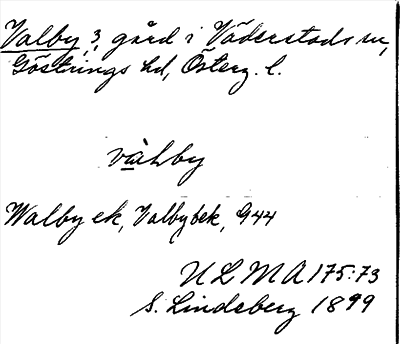 Valby, 3, gård i Väderstads sn,
Göstrings hd, Österg. l.
Walby ek, Valbybek, G44
ULMA 175:73
S. Lindeberg 1899